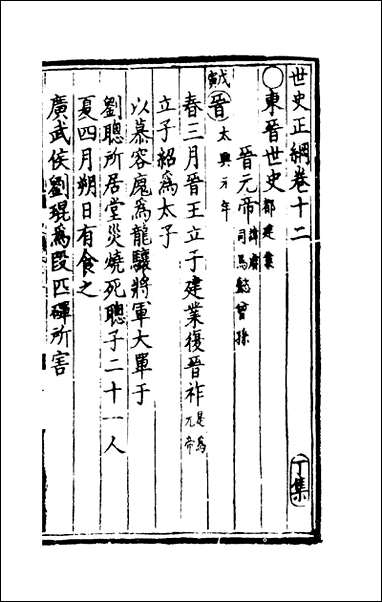 世史正綱卷十二
丁集
○東晉世史都建業
晉元帝諱睿司馬懿曾孫
戊寅晉太興元年
春三月晉王立于建業復晉祚是為元帝
立子紹為太子
以慕容廆為龍驤將軍大單于
劉聰所居堂災燒死聰子二十一人
夏四月朔日有食之
廣武侯劉琨為段匹磾所害